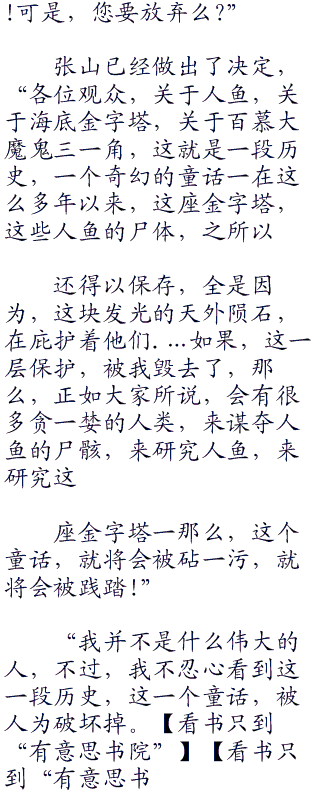 !可是，您要放弃么?”
张山已经做出了决定，
“各位观众，关于人鱼，关
于海底金字塔，关于百慕大
魔鬼三一角，这就是一段历
史，一个奇幻的童话一在这
么多年以来，这座金字塔，
这些人鱼的尸体，之所以
还得以保存，全是因
为，这块发光的天外陨石，
在庇护着他们．…如果，这一
层保护，被我毁去了，那
么，正如大家所说，会有很
多贪一婪的人类，来谋夺人
鱼的尸骸，来研究人鱼，来
研究这
座金字塔一那么，这个
童话，就将会被砧一污，就
将会被践踏!”
“我并不是什么伟大的
人，不过，我不忍心看到这
一段历史，这一个童话，被
人为破坏掉。【看书只到
“有意思书院”】【看书只
到“有意思书